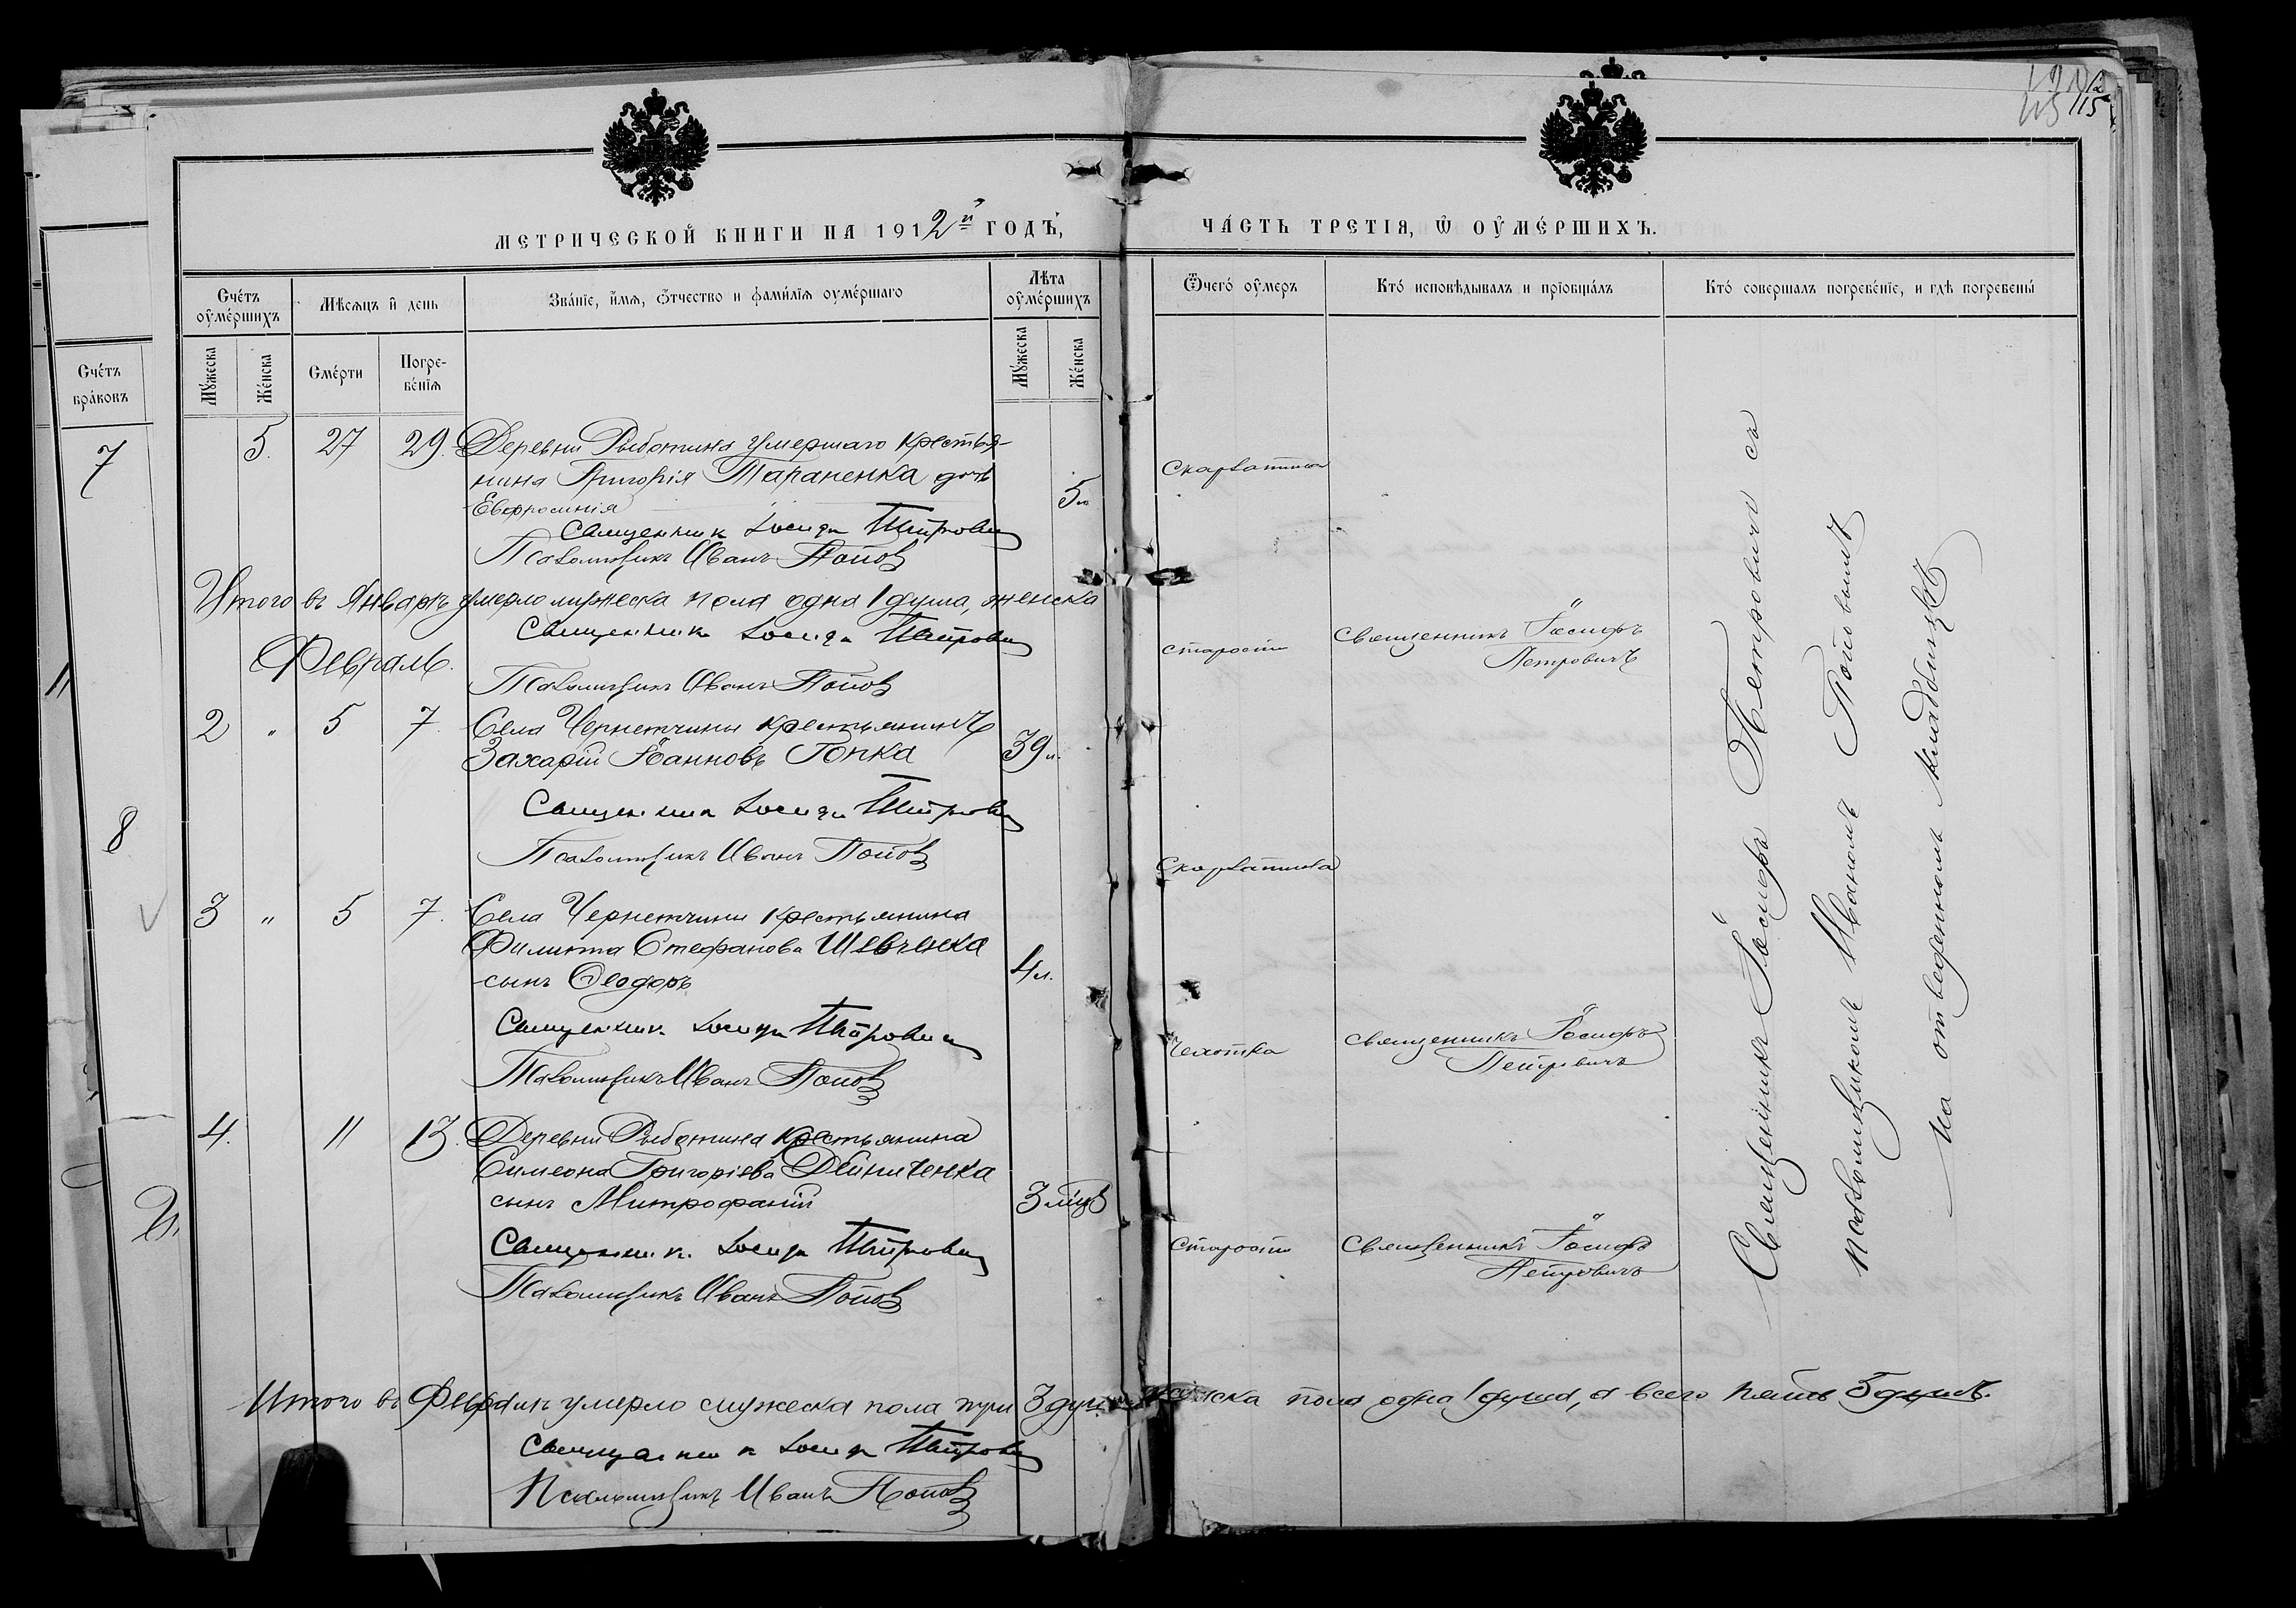 МЕТРИЧЕСКОЙ КНИГИ НА 1912й ГОДЪ,
Счетъ оумершихъ
Мѣсяцъ и день
Званіе, имя, отчество и фамилія оумершаго
Лѣта оумершихъ
Мужеска
Женска
Смерти
Погребенія
Мужеска
Женска
5. 27 29. Деревни Рыботина умершаго крестья-
нина Григорія Тараненка дочь 5 л.
Евфросинія
Священникъ Іосифъ Петровичъ
Псаломщикъ Иванъ Поповъ
Итого въ Январѣ умерло мужеска пола одна 1 душа, женска
Священникъ Іосифъ Петровичъ
Февраль.
Псаломщикъ Иванъ Поповъ
2 " 5 7. Села Чернетчины крестьянинъ
Захарій Іоанновъ Гопка 39 л.
Священникъ Іосифъ Петровичъ
Псаломщикъ Иванъ Поповъ
3 " 5 7. Села Чернетчины крестьянина
Филиппа Стефанова Шевченка
сынъ Ѳеодоръ 4 л.
Священникъ Іосифъ Петровичъ
Псаломщикъ Иванъ Поповъ
4. 11 13. Деревни Рыботина крестьянина
Симеона Григоріева Дейниченка
сынъ Митрофаній 3 мцв
Священникъ Іосифъ Петровичъ
Псаломщикъ Иванъ Поповъ
Итого въ Февралѣ умерло мужеска пола три 3 души женска пола одна 1 душа, а всего пять 5 душъ.
Священникъ Іосифъ Петровичъ
Псаломщикъ Иванъ Поповъ
Счетъ браковъ
7
11
8
И
ЧАСТЬ ТРЕТІЯ, Ѡ ОУМЕРШИХЪ.
115
Ѿчего оумеръ
Кто исповѣдывалъ и пріобщалъ
Кто совершалъ погребеніе, и гдѣ погребены
Скарлатина
старости
Священникъ Іосифъ
Петровичъ
Скарлатина
Чахотка
Священникъ Іосифъ
Петровичъ
Старости
Священникъ Іосифъ
Петровичъ
Священникъ Іосифъ Петровичъ съ
псаломщикомъ Иваномъ Поповымъ
на отведенномъ кладбищѣ